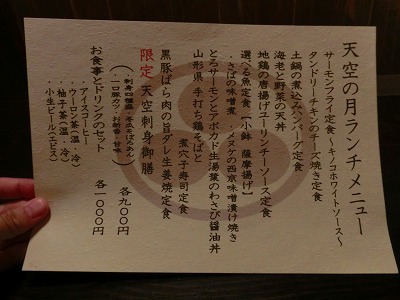 天空の月ランチメニュー
サーモンフライ定食 ～キノコホワイトソース～
タンドリーチキンのチーズ焼き定食
土鍋の煮込みハンバーグ定食
海老と野菜の天丼
地鶏の唐揚げユーリンチーソース定食
選べる魚定食【小鉢 薩摩揚げ】
・さばの味噌煮 ・メヌケの西京味噌漬け焼き
とろサーモンとアボカド生湯葉のわさび醤油丼
山形県 手打ち鶏そばと
煮穴子寿司定食
黒豚ばら肉の旨ダレ生姜焼定食
限定 天空刺身御膳
・一口豚カツ
各九〇〇円
お食事とドリンクのセット
各一〇〇〇円
・アイスコーヒー
・ウーロン茶(温・冷)
・柚子茶(温・冷)
・小生ビール(エビス)